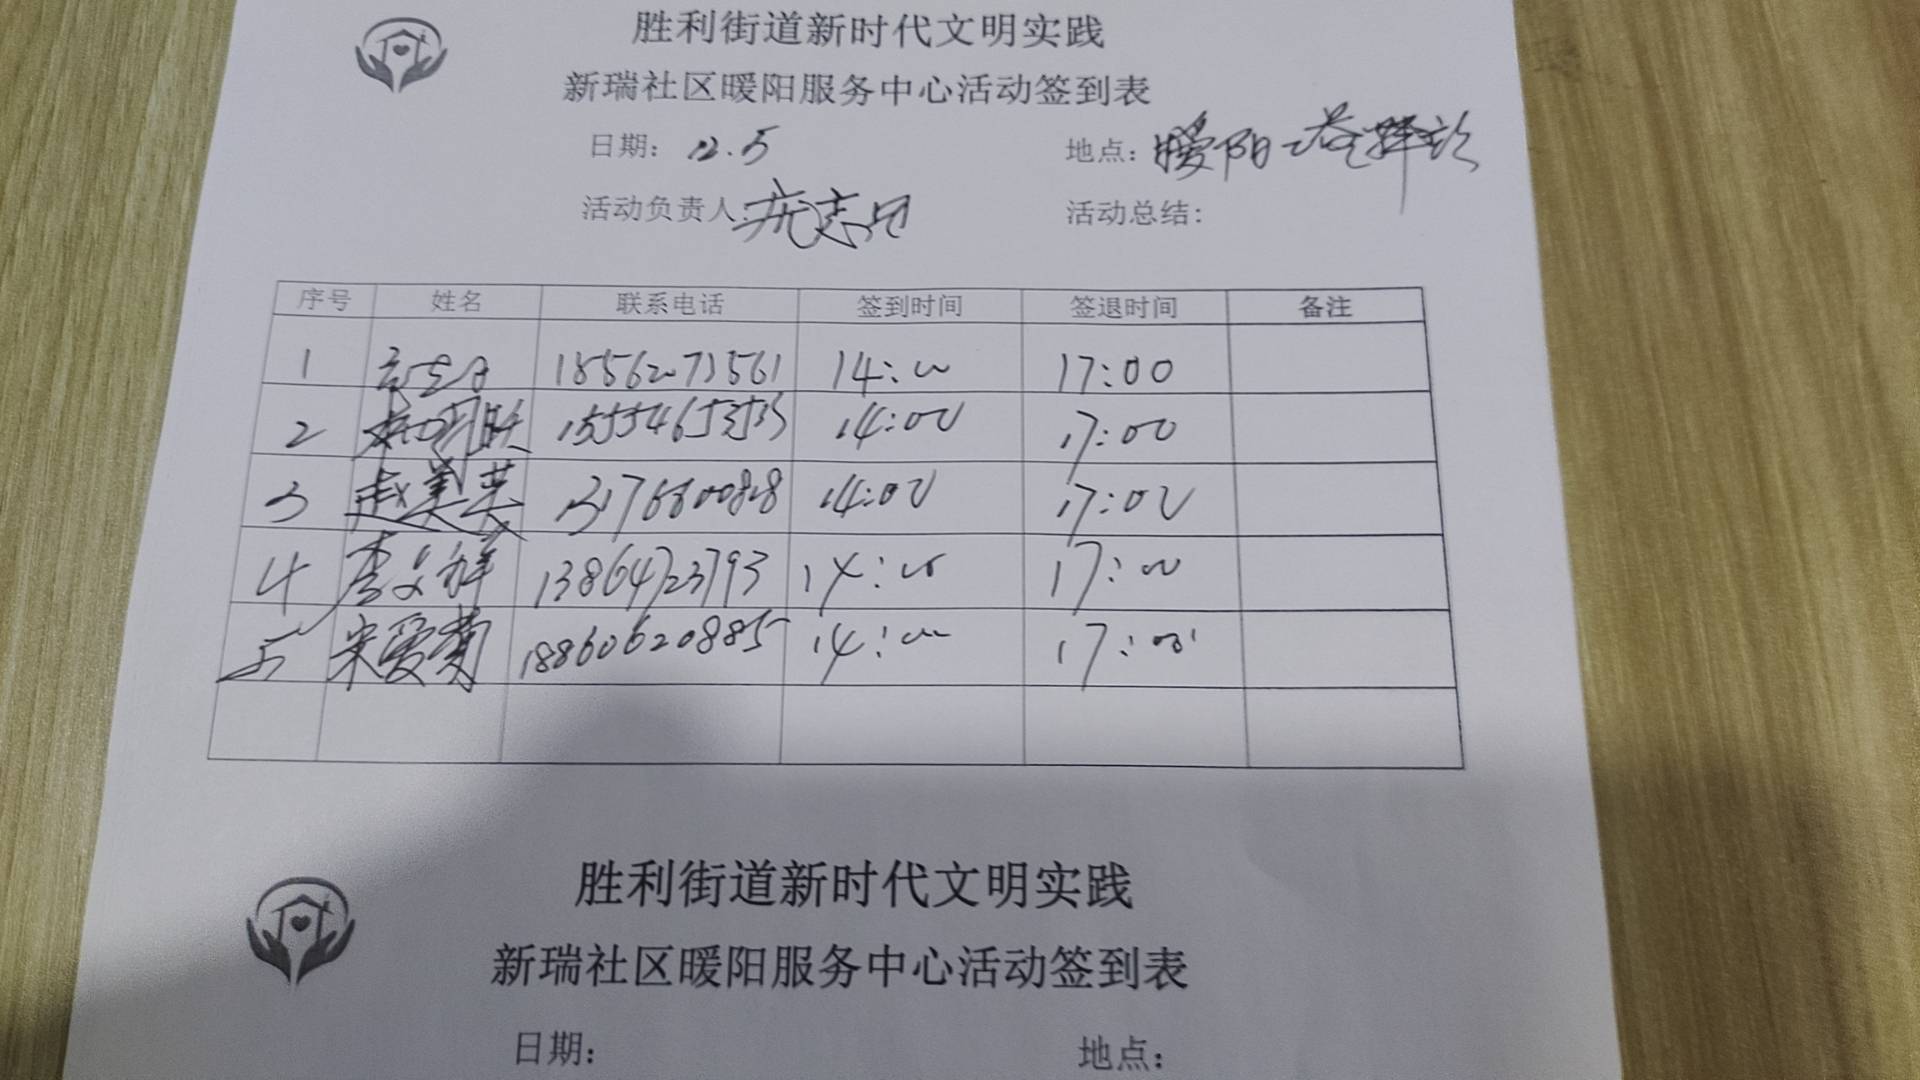 胜利街道新时代文明实践
新瑞社区暖阳服务中心活动签到表
日期: 12.5 地点: 暖阳
活动负责人: 庞志 活动总结:
序号 姓名 联系电话 签到时间 签退时间 备注
1 14:00 17:00
2 14:00 17:00
3 赵美英 14:00 17:00
4 李文祥 13864723793 14:00 17:00
5 宋爱菊 18860620885 14:00 17:00
胜利街道新时代文明实践
新瑞社区暖阳服务中心活动签到表
日期: 地点: